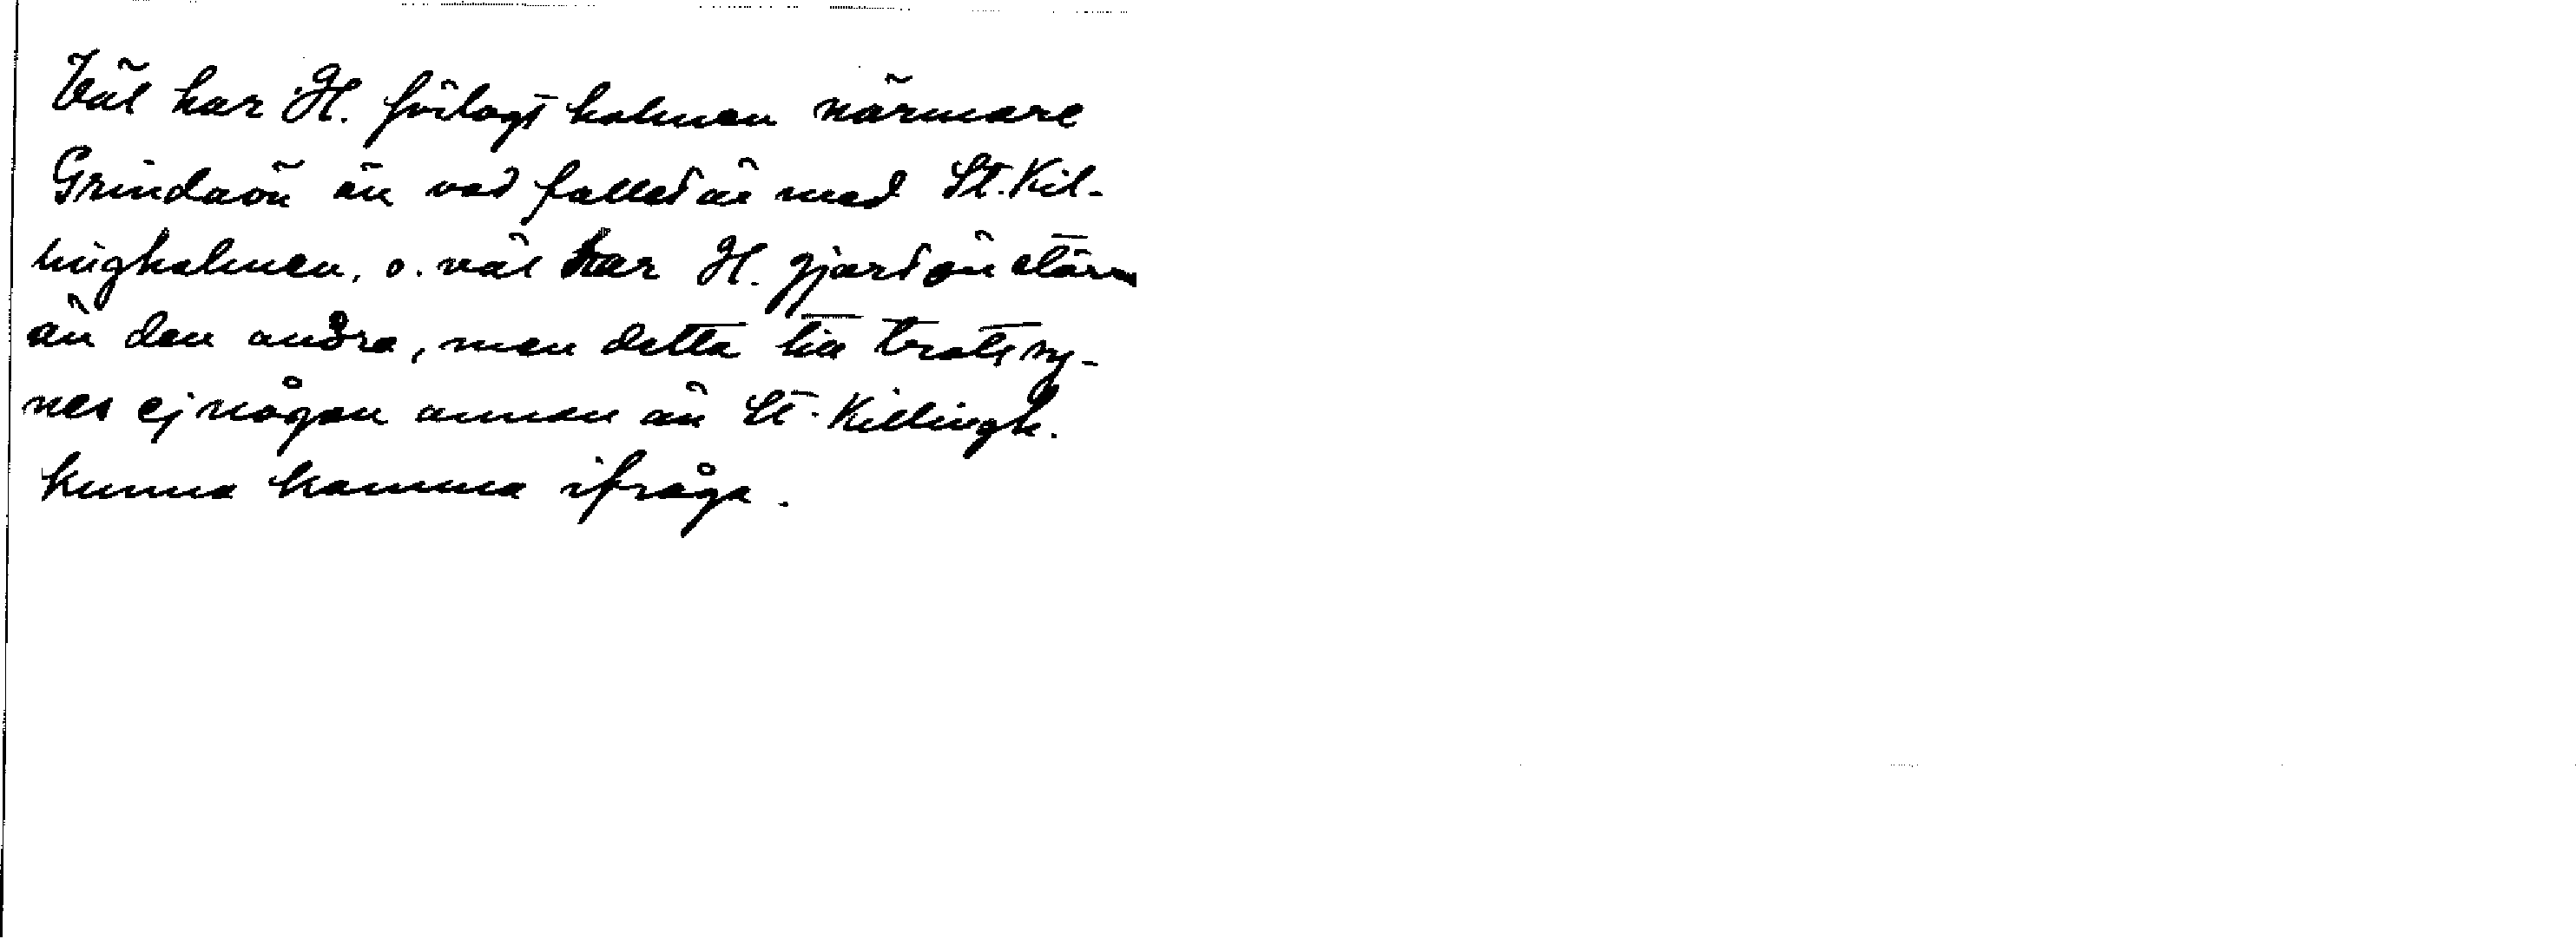 Väl har H. förlagt holmen närmare
Grindaön än vad fallet är med St. Kil-
lingholmen, o. väl har H. gjort ön större
än den andra, men detta till trots sy-
nes ej någon annan än St. Killingh.
kunna komma ifråga.